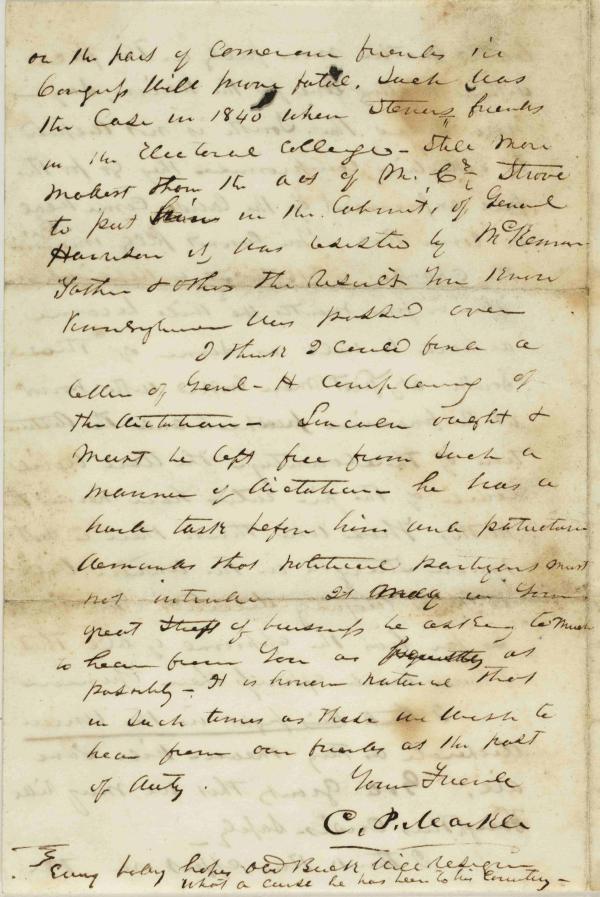 on the part of Cameron friends in
Congress Will prove fatal. Such was
the Case in 1840 when Stevens friends
in the Electoral College - Still More
modest than the act of M. C Strove
to put him in the Cabinet, of General
Harrison it was resisted by McKennan
Father & others the result You Know
Pennsylvania was passed over
I think I could find a
letter of Genl - H complaining of
the dictation - Lincoln ought &
Must be left free from such a
manner of dictation he has a
hard task before him and patriotism
demands that political partizans must
not intrude It may in Your
great of business be asking to Much
to hear from You as frequently as
possible - It is human natural that
in such times as these we Wish to
hear from our friends at the post
of duty. Your Friend
C. P. Markle
Every body hopes Old Buck Will resign
what a curse he has been to his Country -